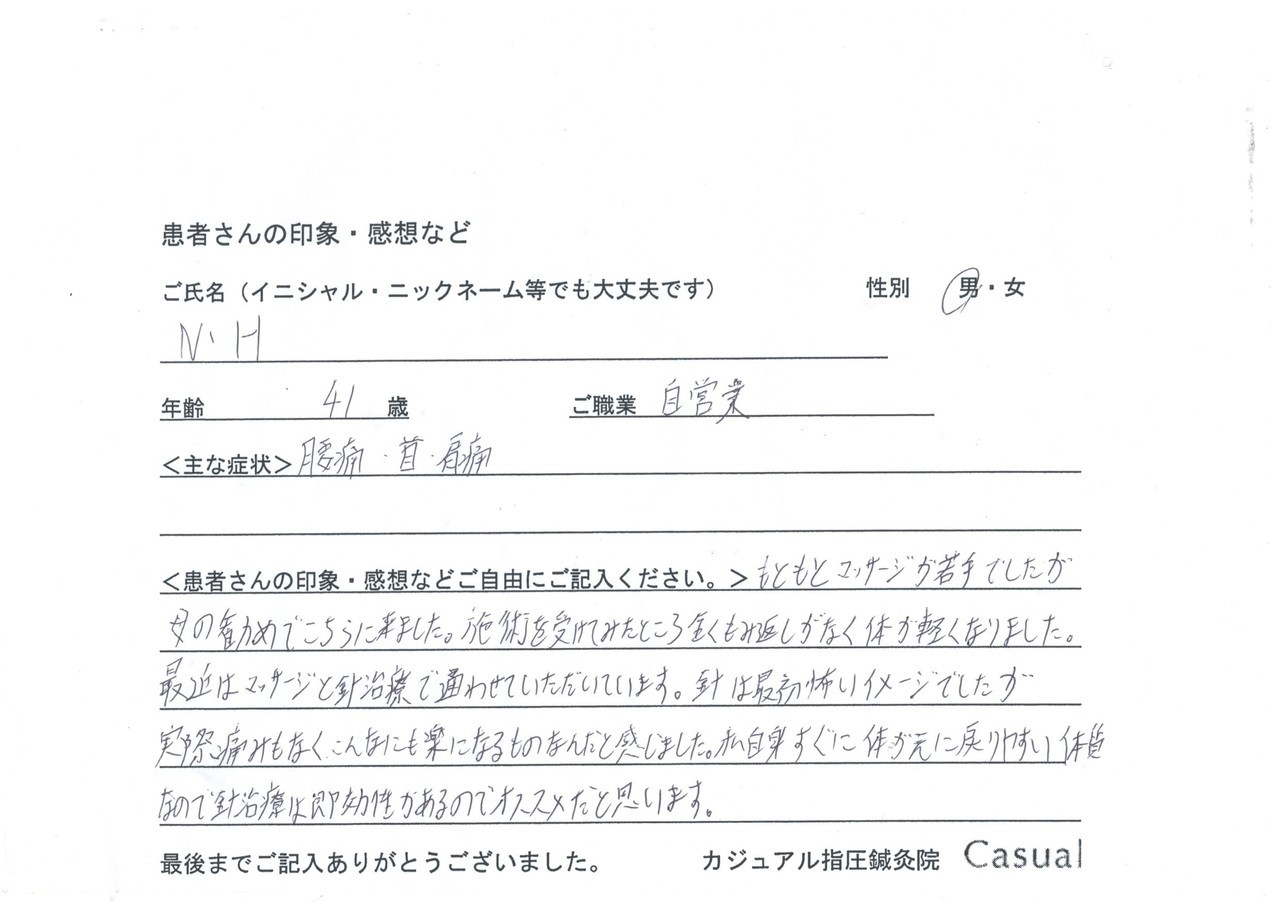 患者さんの印象・感想など
ご氏名（イニシャル・ニックネーム等でも大丈夫です） 性別 男・女
N・H
年齢 41 歳 ご職業 自営業
＜主な症状＞腰痛・首・肩痛
＜患者さんの印象・感想などご自由にご記入ください。＞もともとマッサージが苦手でしたが
母の勧めでこちらに来ました。施術を受けてみたところ全くもみ返しがなく体が軽くなりました。
最近はマッサージと針治療で通わせていただいています。針は最初怖いイメージでしたが
実際痛みもなく、こんなにも楽になるものなんだと感じました。私自身すぐに体が元に戻りやすい体質
なので針治療は即効性があるのでオススメだと思います。
最後までご記入ありがとうございました。 カジュアル指圧鍼灸院 Casual